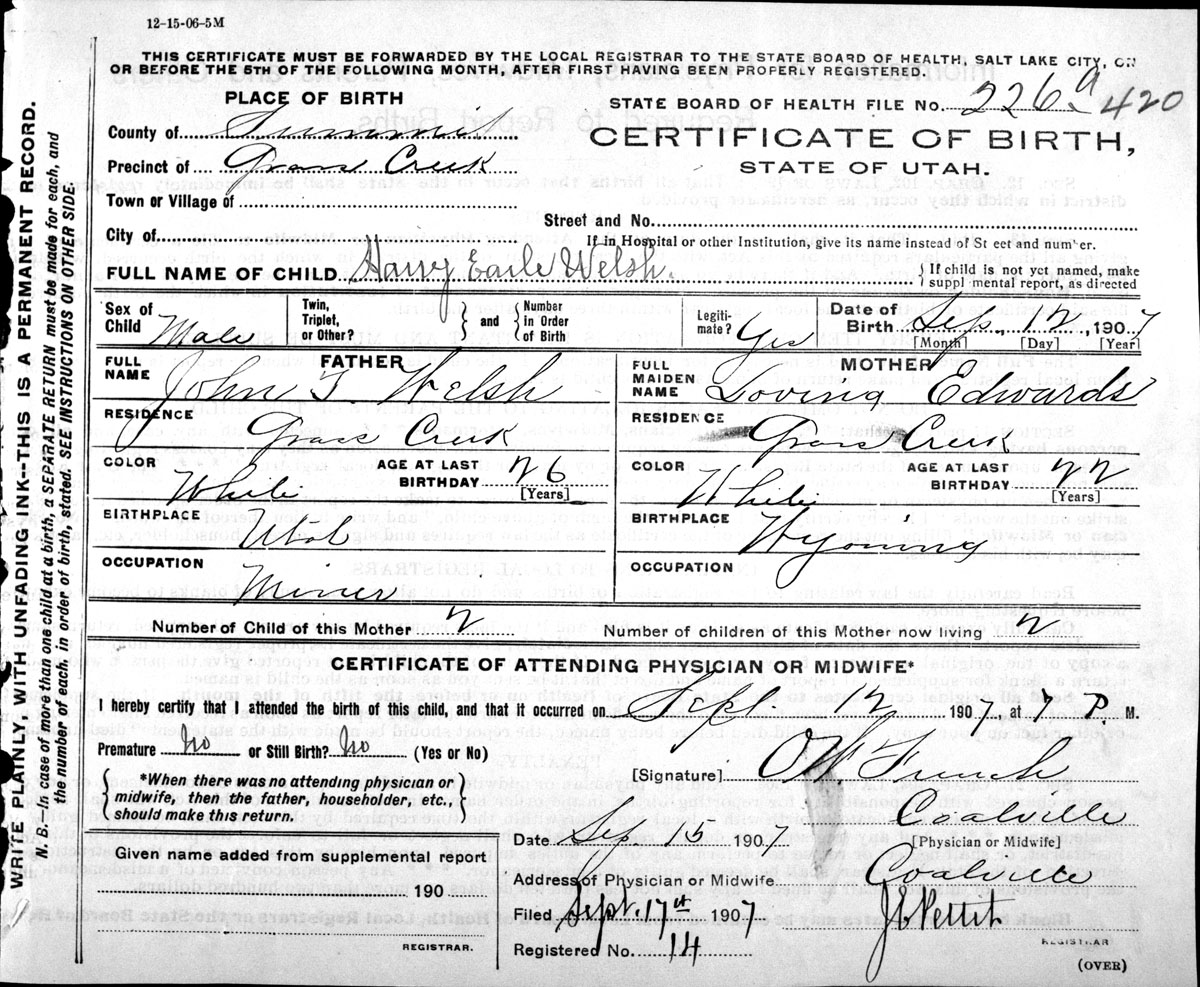 12-15-06-5M
THIS CERTIFICATE MUST BE FORWARDED BY THE LOCAL REGISTRAR TO THE STATE BOARD OF HEALTH, SALT LAKE CITY, ON
OR BEFORE THE 5TH OF THE FOLLOWING MONTH, AFTER FIRST HAVING BEEN PROPERLY REGISTERED.
PLACE OF BIRTH
STATE BOARD OF HEALTH FILE No. 226a 420
County of Summit
CERTIFICATE OF BIRTH,
Precinct of Grass Creek
STATE OF UTAH.
Town or Village of
Street and No.
City of
If in Hospital or other Institution, give its name instead of St eet and num er.
FULL NAME OF CHILD. Harry Earle Welsh.
{ If child is not yet named, make
suppl mental report, as directed
Sex of Child Male
Twin, Triplet, or Other? } and { Number in Order of Birth
Legiti- mate? Yes
Date of Birth Sep. 12, 1907
[Month] [Day] [Year]
FULL NAME FATHER John T. Welsh
FULL MAIDEN NAME MOTHER Edwards
RESIDENCE Grass Creek
RESIDENCE Grass Creek
COLOR White AGE AT LAST BIRTHDAY 26 [Years]
COLOR White AGE AT LAST BIRTHDAY 22 [Years]
BIRTHPLACE Utah
BIRTHPLACE Wyoming
OCCUPATION Miner
OCCUPATION
Number of Child of this Mother 2
Number of children of this Mother now living 2
CERTIFICATE OF ATTENDING PHYSICIAN OR MIDWIFE*
I hereby certify that I attended the birth of this child, and that it occurred on Sept 12 1907, at 7 P. M.
Premature No or Still Birth? No (Yes or No)
{ *When there was no attending physician or
midwife, then the father, householder, etc.,
should make this return. }
[Signature]
Coalville
Date Sep 15 1907
[Physician or Midwife]
Given name added from supplemental report
Address of Physician or Midwife Coalville
190
Filed Sept. 17th 1907
REGISTRAR.
Registered No. 14
REGISTRAR
(OVER)
WRITE PLAINLY, WITH UNFADING INK--THIS IS A PERMANENT RECORD.
N. B. In case of more than one child at a birth, a SEPARATE RETURN must be made for each, and
the number of each, in order of birth, stated. SEE INSTRUCTIONS ON OTHER SIDE.